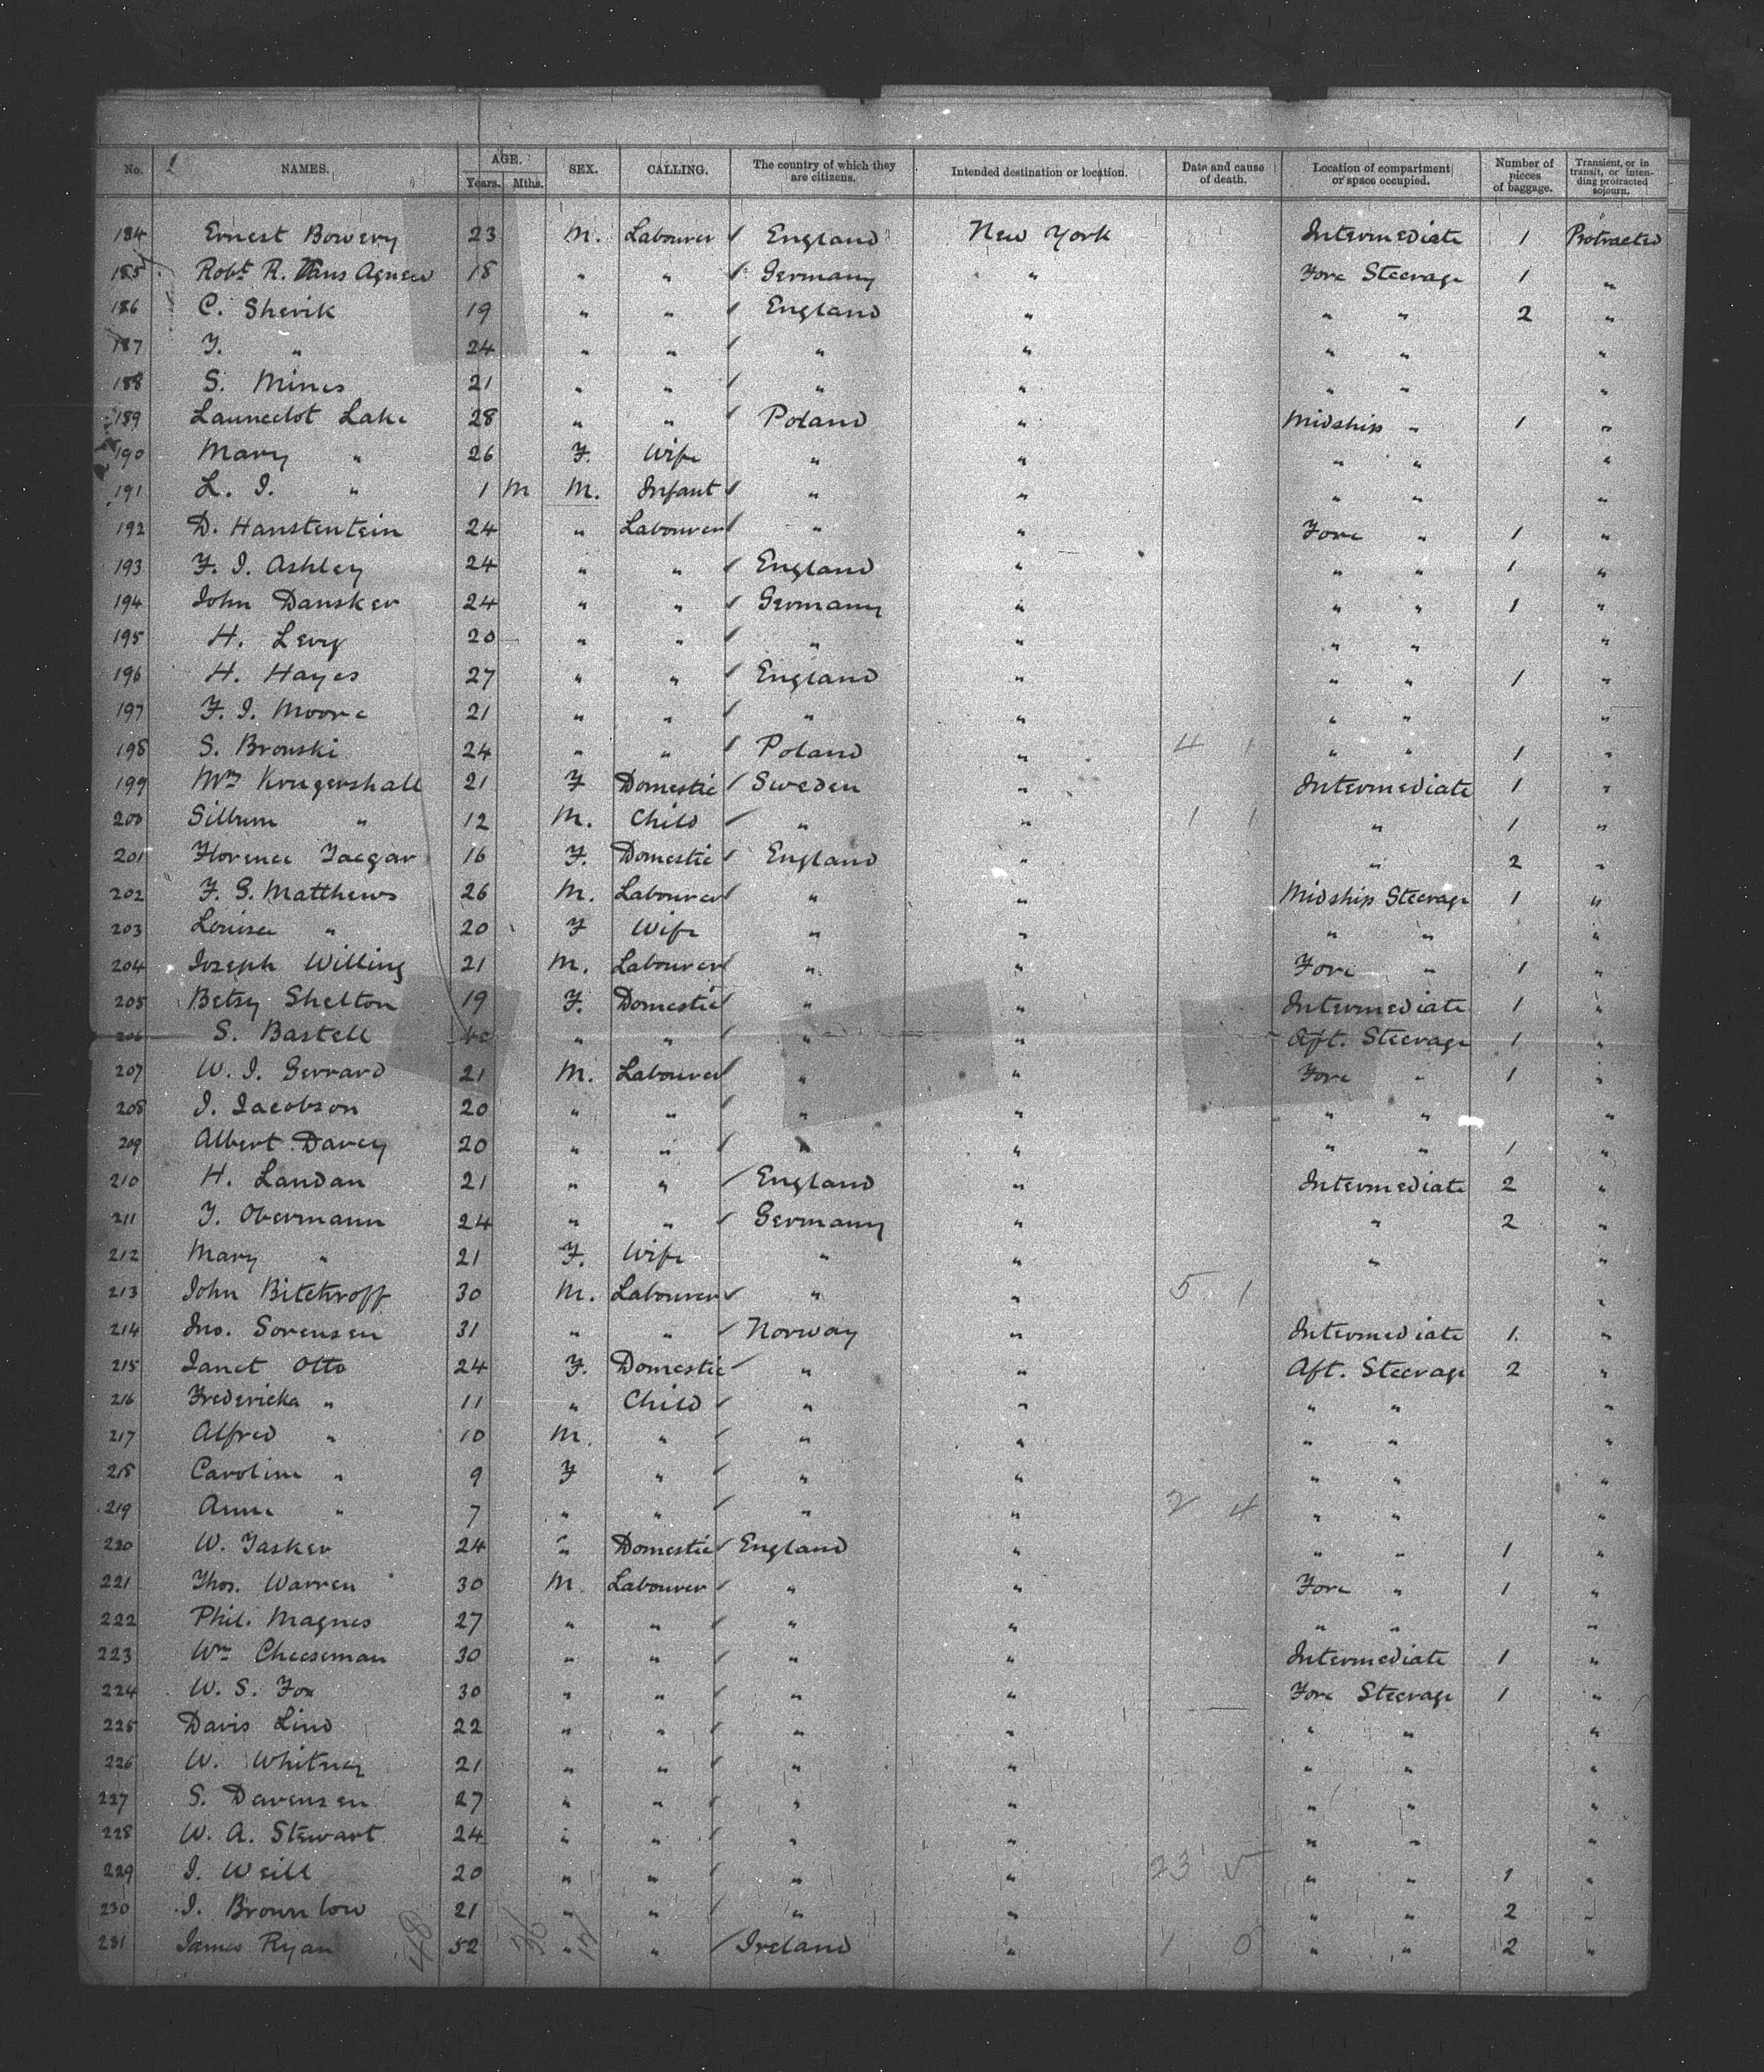 No. 1 NAMES. AGE. Years. Mths. SEX. CALLING. The country of which they are citizens. Intended destination or location. Date and cause of death. Location of compartment or space occupied. Number of pieces of baggage. Transient, or in transit, or intending protracted sojourn.
184 Ernest Bowery 23 M. Labourer ✓ England New York Intermediate 1 Protracted
185 Robt. R. Vans Agnew 18 " " ✓ Germany " Fore Steerage 1 "
186 C. Shevik 19 " " ✓ England " " " 2 "
187 J. " 24 " " ✓ " " " " "
188 S. Mines 21 " " ✓ " " " " "
189 Launcelot Lake 28 " " ✓ Poland " Midship " 1 "
190 Mary " 26 F. Wife " " " " "
191 L. I. " 1 M M. Infant ✓ " " " " "
192 D. Hanstentein 24 " Labourer ✓ " " Fore " 1 "
193 F. I. Ashley 24 " " ✓ England " " " 1 "
194 John Dansker 24 " " ✓ Germany " " " 1 "
195 H. Levy 20 " " ✓ " " " " "
196 H. Hayes 27 " " ✓ England " " " 1 "
197 F. I. Moore 21 " " ✓ " " " " "
198 S. Bronski 24 " " ✓ Poland " 4 1 " " 1 "
199 Mrs Krugershall 21 F Domestic ✓ Sweden " Intermediate 1 "
200 Silbum " 12 M. Child ✓ " " 1 1 " 1 "
201 Florence Jaegar 16 F. Domestic ✓ England " " 2 "
202 F. G. Matthews 26 M. Labourer ✓ " " Midship Steerage 1 "
203 Louisa " 20 F Wife " " " " "
204 Joseph Willing 21 M. Labourer ✓ " " Fore " 1 "
205 Betsy Shelton 19 F. Domestic ✓ " " Intermediate 1 "
206 S. Bastell 40 " " ✓ " " Aft. Steerage 1 "
207 W. I. Gerrard 21 M. Labourer ✓ " " Fore " 1 "
208 I. Jacobson 20 " " ✓ " " " " "
209 Albert Davey 20 " " ✓ " " " " 1 "
210 H. Landan 21 " " ✓ England " Intermediate 2 "
211 J. Obermann 24 " " ✓ Germany " " 2 "
212 Mary " 21 F. Wife " " " "
213 John Bitchroff 30 M. Labourer ✓ " " 5 1 "
214 Jno. Sorensen 31 " " ✓ Norway " Intermediate 1. "
215 Janet Otto 24 F. Domestic ✓ " " Aft. Steerage 2 "
216 Fredericka " 11 " Child ✓ " " " " "
217 Alfred " 10 M. " ✓ " " " " "
218 Caroline " 9 F " ✓ " " " " "
219 Anne " 7 " " ✓ " " 2 4 " " "
220 W. Tasker 24 " Domestic ✓ England " " " 1 "
221 Thos. Warren 30 M. Labourer ✓ " " Fore " 1 "
222 Phil. Magnes 27 " " ✓ " " " " "
223 Wm Cheeseman 30 " " ✓ " " Intermediate 1 "
224 W. S. Fox 30 " " ✓ " " Fore Steerage 1 "
225 Davis Lind 22 " " ✓ " " " " "
226 W. Whitney 21 " " ✓ " " " " "
227 S. Davensen 27 " " ✓ " " " " "
228 W. A. Stewart 24 " " ✓ " " " " "
229 I. Weill 20 " " ✓ " " 23 5 " " 1 "
230 I. Brownlow 21 " " ✓ " " " " 2 "
231 James Ryan 52 " " ✓ Ireland " 1 0 " " 2 "
48 36 12